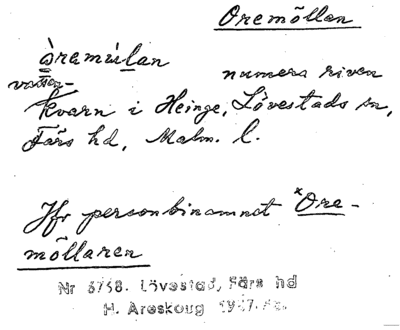 Oremöllan
òramúlan
numera riven
vatten-
kvarn i Heinge, Lövestads sn,
Färs hd, Malm. l.
Jfr personbinamnet *Ore-
möllaren
Nr 6758. Lövestad, Färs hd
H. Areskoug